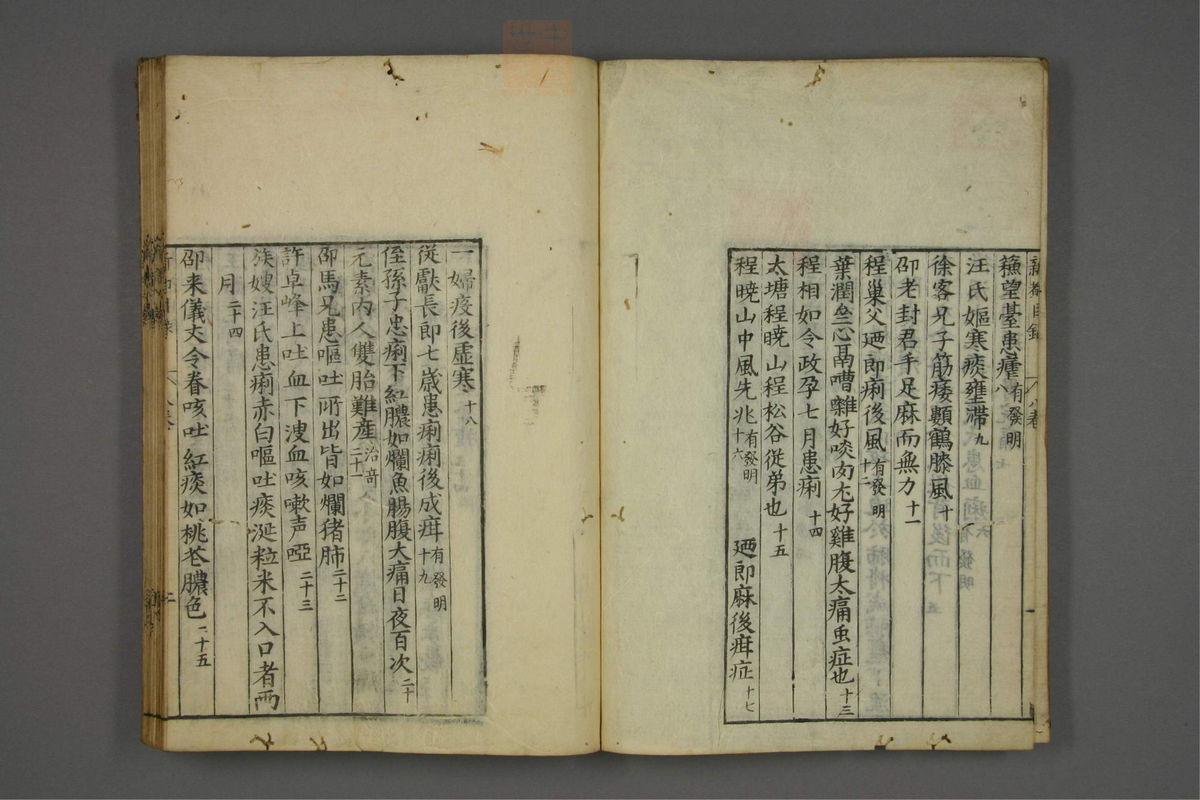 籲望臺患瘧有發明八
汪氏嫗寒痰壅滯九
徐客兄子筋痿顴鶴膝風十
邵老封君手足麻而無力十一
程巢父廼郎痢後風有發明十二
葉潤叁心鬲嘈雜好啖肉尢好雞腹太痛虫症也十三
程相如令政孕七月患痢十四
太塘程曉山程松谷從弟也十五
程曉山中風先兆有發明十六 廼郎麻後疳症十七
一婦疫後虛寒十八
從獻長郎七歲患痢痢後成疳有發明十九
侄孫子忠痢下紅膿如爛魚腸腹大痛日夜百次二十
元素內人雙胎難產治奇二十一
邵馬兄患嘔吐所出皆如爛猪肺二十二
許卓峰上吐血下溲血咳嗽声啞二十三
族嫂汪氏患痢赤白嘔吐痰涎粒米不入口者兩
月二十四
邵来儀丈令眷咳吐紅痰如桃花膿色二十五